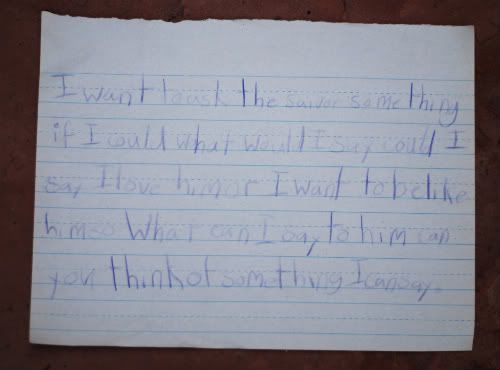 I want to ask the saivor some thing
if I could what would I say could I
say I love him or I want to be like
him so What can I say to him can
you think of something I can say.